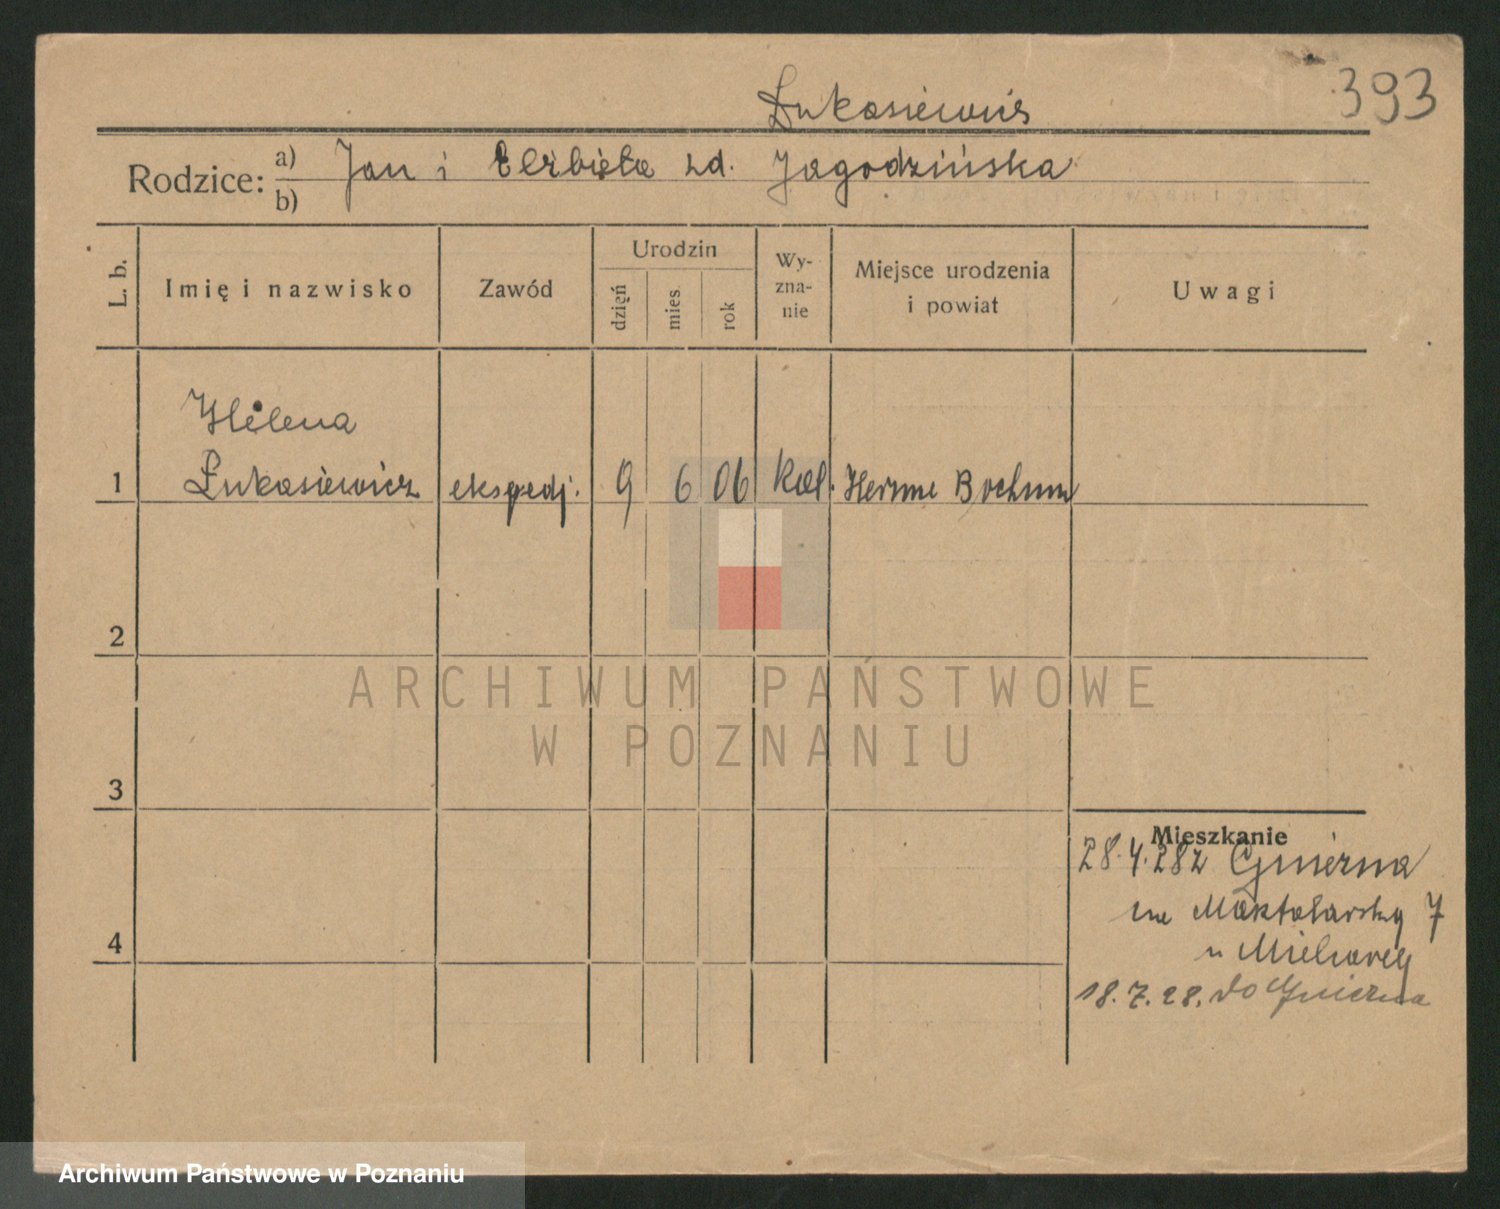 393
Łukasiewicz
Rodzice: a) Jan i Elżbieta zd. Jagodzińska
b)
L. b.
Imię i nazwisko
Zawód
Urodzin
dzień
mies.
rok
Wy-
zna-
nie
Miejsce urodzenia
i powiat
Uwagi
Helena
1 Łukasiewicz ekspedj. 9 6 06 kat. Herne Bochum
2
3
4
Mieszkanie
28.4.28 z Gniezna
7
u
18.7.28. do Gniezna
ARCHIWUM PAŃSTWOWE
W POZNANIU
Archiwum Państwowe w Poznaniu